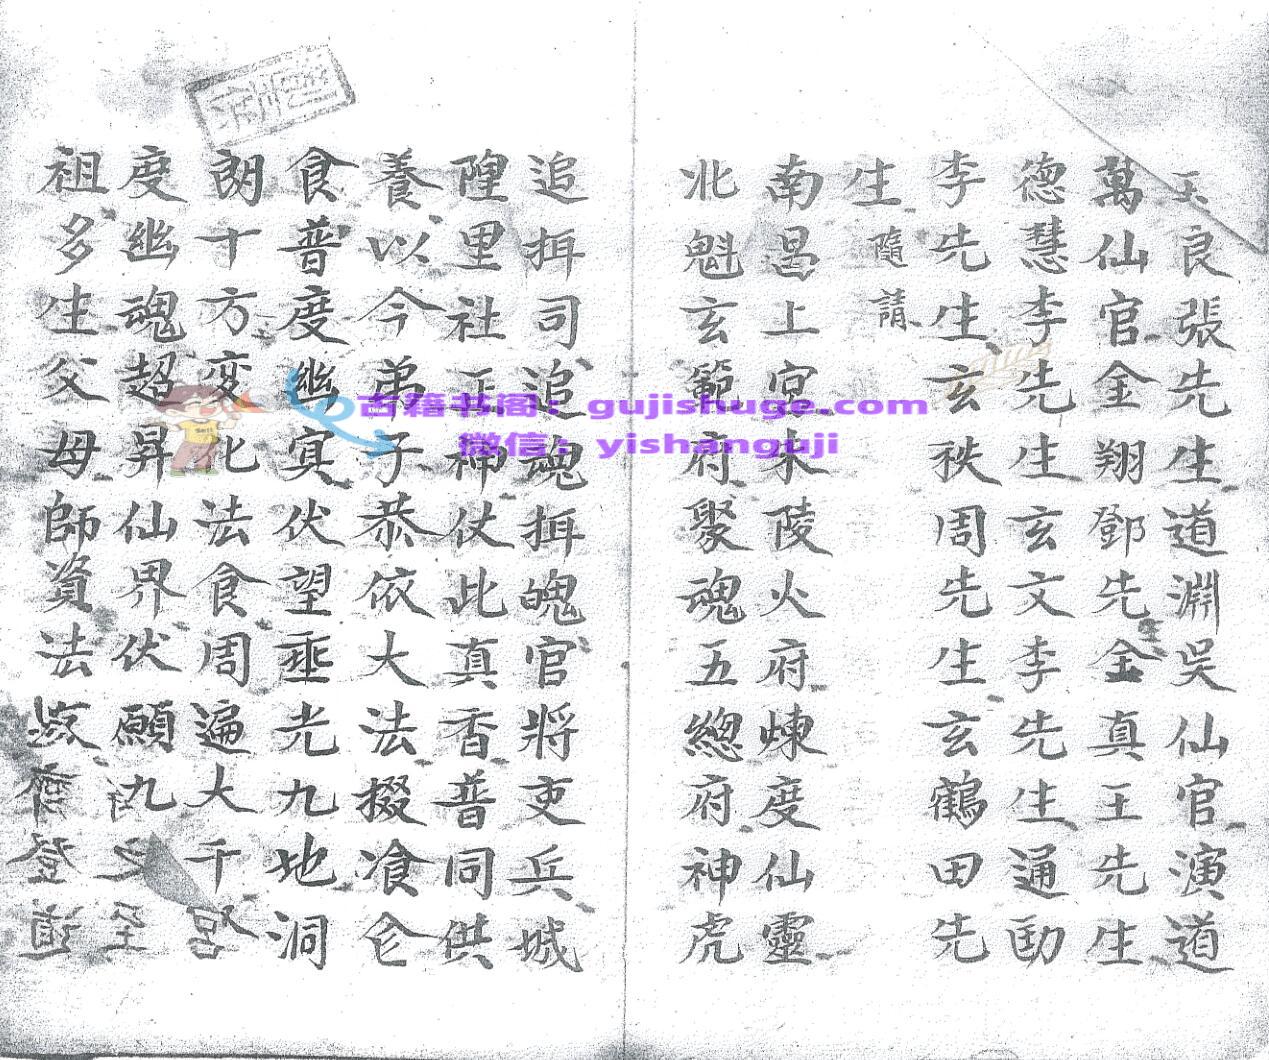 天良張先生道淵吳仙官演道
萬仙官金翔鄧先金真王先生
德慧李先生玄文李先生通
李先生玄秩周先生玄鶴田先
生隨請
南昌上宮朱陵火府煉度仙靈
北魁玄範府聚魂五總府神虎
追捉司追魂捉魄官將吏兵城
隍里社正神仗此真香普同供
養以今弟子恭依大法掇飡
食普度幽冥伏望垂光九地洞
朗十方变化法食周遍大千
度幽魂超昇仙界伏願九至
祖多生父母師資法登道
古籍书阁：gujishuge.com
微信：yishanguji